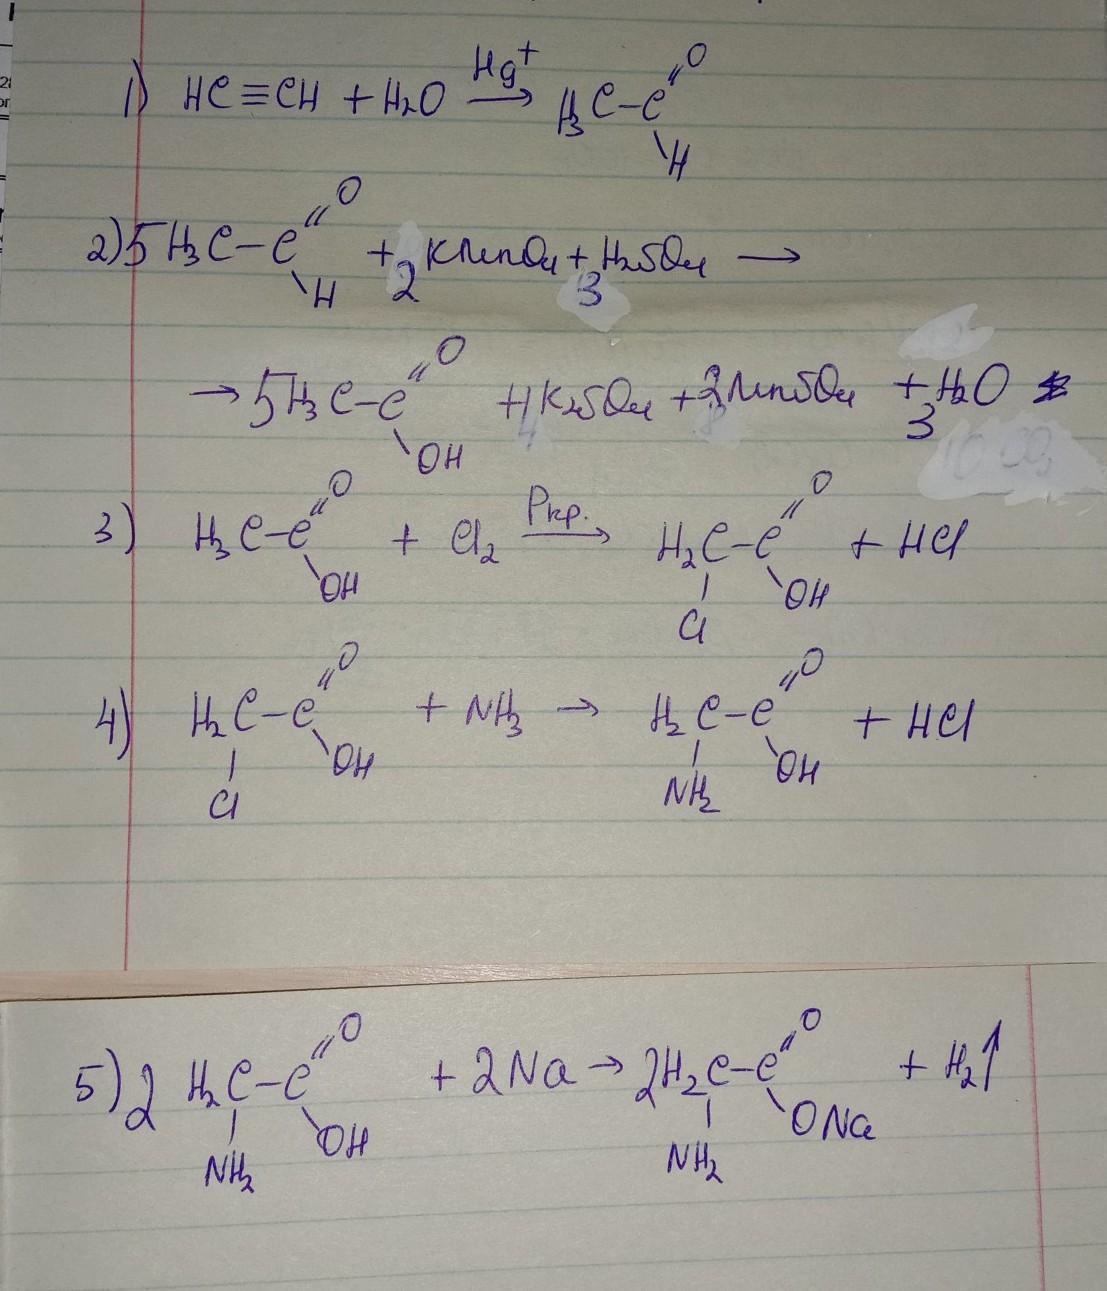 1) HC≡CH + H₂O —Hg⁺→ H₃C–C(=O)–H
2) 5H₃C–C(=O)–H + 2KMnO₄ + 3H₂SO₄ →
→ 5H₃C–C(=O)–OH + 1K₂SO₄ + 2MnSO₄ + 3H₂O
3) H₃C–C(=O)–OH + Cl₂ —Pкр.→ H₂C(Cl)–C(=O)–OH + HCl
4) H₂C(Cl)–C(=O)–OH + NH₃ → H₂C(NH₂)–C(=O)–OH + HCl
5) 2H₂C(NH₂)–C(=O)–OH + 2Na → 2H₂C(NH₂)–C(=O)–ONa + H₂↑